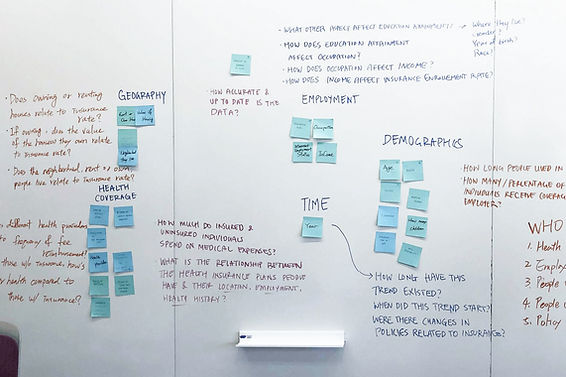 • WHAT OTHER ASPECT AFFECT EDUCATION
Where they live?
Gender?
Year of birth?
Race?
• HOW DOES EDUCATION ATTAINMENT
AFFECT OCCUPATION?
• HOW DOES OCCUPATION AFFECT INCOME?
• HOW DOES INCOME AFFECT INSURANCE ENROLLMENT RATE?
• HOW ACCURATE &
UP TO DATE IS THE
DATA?
GEOGRAPHY
• Does owning or renting
houses relate to insurance
rate?
• If owning, does the value
of the houses they own relate
to insurance rate?
• Does the neighborhood, rent or own,
people live relate to insurance rate?
EMPLOYMENT
Occupation
Income
DEMOGRAPHICS
Age
children
• HOW LONG PEOPLE LIVED IN
• HOW MANY/PERCENTAGE OF
INDIVIDUALS RECEIVE COVERAGE
EMPLOYER?
HEALTH
COVERAGE
different health providers
to frequency of fee
reimbursement?
those w/o insurance, how's
health compared to
those w/ insurance?
TIME
Year
HOW MUCH DO INSURED &
UNINSURED INDIVIDUALS
SPEND ON MEDICAL EXPENSES?
• WHAT IS THE RELATIONSHIP BETWEEN
THE HEALTH INSURANCE PLANS PEOPLE
HAVE & THEIR LOCATION, EMPLOYMENT,
HEALTH HISTORY?
• HOW LONG HAVE THIS
TREND EXISTED?
WHEN DID THIS TREND START?
WERE THERE CHANGES IN
POLICIES RELATED TO INSURANCE?
WHO
1. Health
2. Employe
3. People
4. People
5. Policy